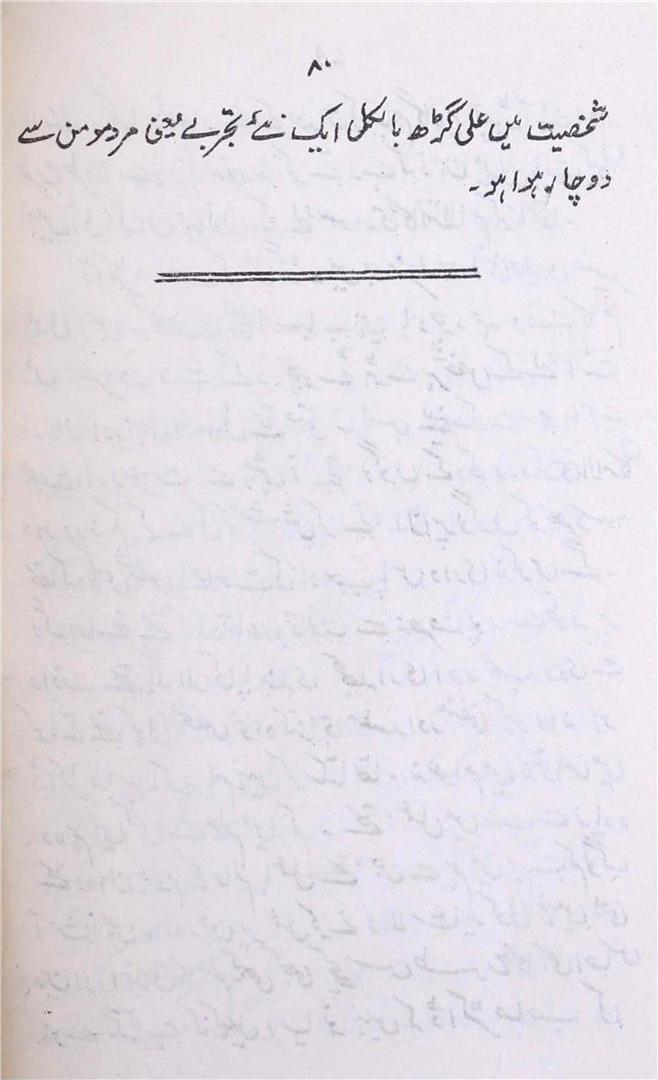 ۸۰
شخصیت میں علی گڑھ بالکل ایک نئے تجربے یعنی مردمومن سے
دوچار ہوا ہو۔